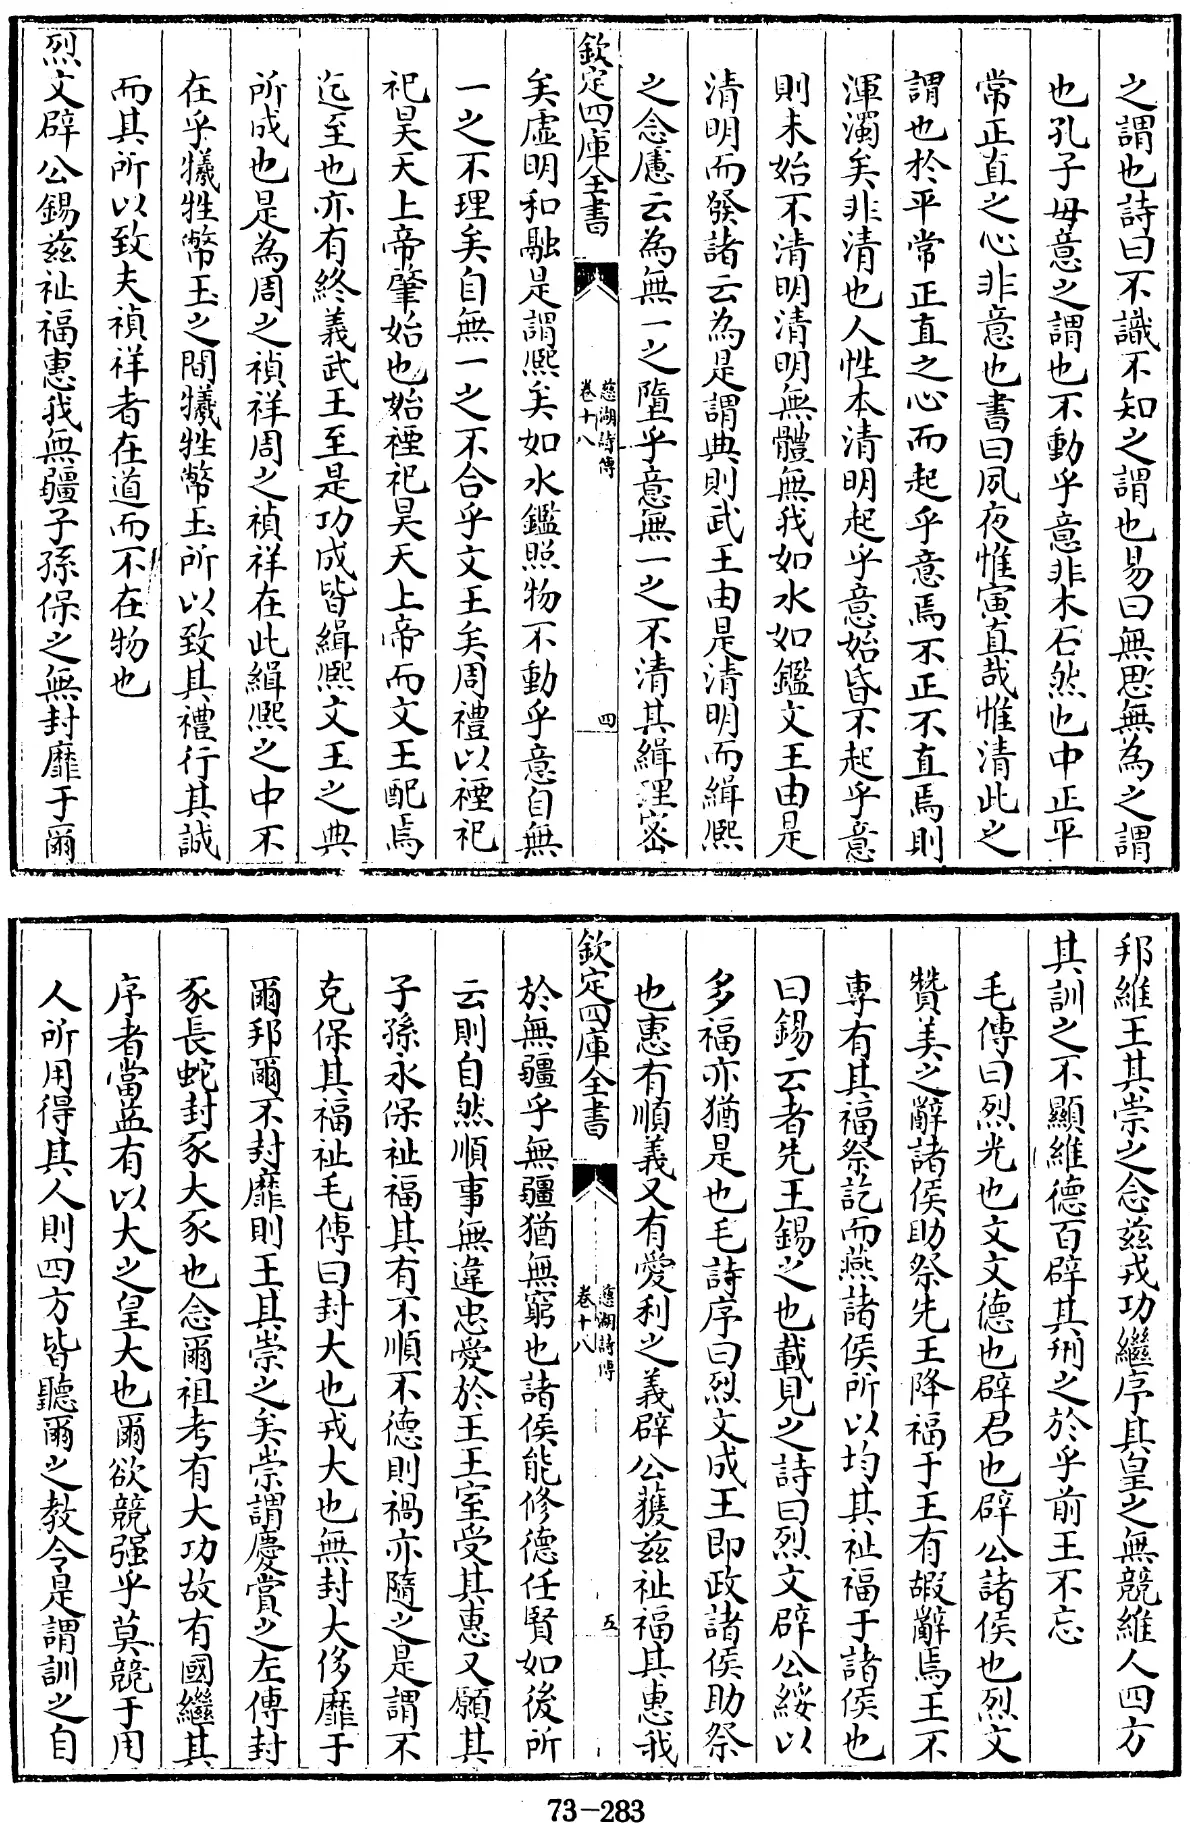 之謂也詩曰不識不知之謂也易曰無思無為之謂
也孔子毋意之謂也不動乎意非木石然也中正平
常正直之心非意也書曰夙夜惟寅直哉惟清此之
謂也於平常正直之心而起乎意焉不正不直焉則
渾濁矣非清也人性本清明起乎意始昏不起乎意
則未始不清明清明無體無我如水如鑑文王由是
清明而發諸云為是謂典則武王由是清明而緝熙
之念慮云為無一之墮乎意無一之不清其緝理密
欽定四庫全書
慈湖詩傳
卷十八
四
矣虛明和融是謂熙矣如水鑑照物不動乎意自無
一之不理矣自無一之不合乎文王矣周禮以禋祀
祀昊天上帝肇始也始禋祀昊天上帝而文王配焉
迄至也亦有終義武王至是功成皆緝熙文王之典
所成也是為周之禎祥周之禎祥在此緝熙之中不
在乎犧牲幣玉之間犧牲幣玉所以致其禮行其誠
而其所以致夫禎祥者在道而不在物也
烈文辟公錫茲祉福惠我無疆子孫保之無封靡于爾
邦維王其崇之念茲戎功繼序其皇之無競維人四方
其訓之不顯維德百辟其刑之於乎前王不忘
毛傳曰烈光也文文德也辟君也辟公諸侯也烈文
贊美之辭諸侯助祭先王降福于王有嘏辭焉王不
專有其福祭訖而燕諸侯所以均其祉福于諸侯也
曰錫云者先王錫之也載見之詩曰烈文辟公綏以
多福亦猶是也毛詩序曰烈文成王即政諸侯助祭
也惠有順義又有愛利之義辟公獲茲祉福其惠我
欽定四庫全書
慈湖詩傳
卷十八
五
於無疆乎無疆猶無窮也諸侯能修德任賢如後所
云則自然順事無違忠愛於王王室受其惠又願其
子孫永保祉福其有不順不德則禍亦隨之是謂不
克保其福祉毛傳曰封大也戎大也無封大侈靡于
爾邦爾不封靡則王其崇之矣崇謂慶賞之左傳封
豕長蛇封豕大豕也念爾祖考有大功故有國繼其
序者當益有以大之皇大也爾欲競强乎莫競于用
人所用得其人則四方皆聽爾之教令是謂訓之自
73-283